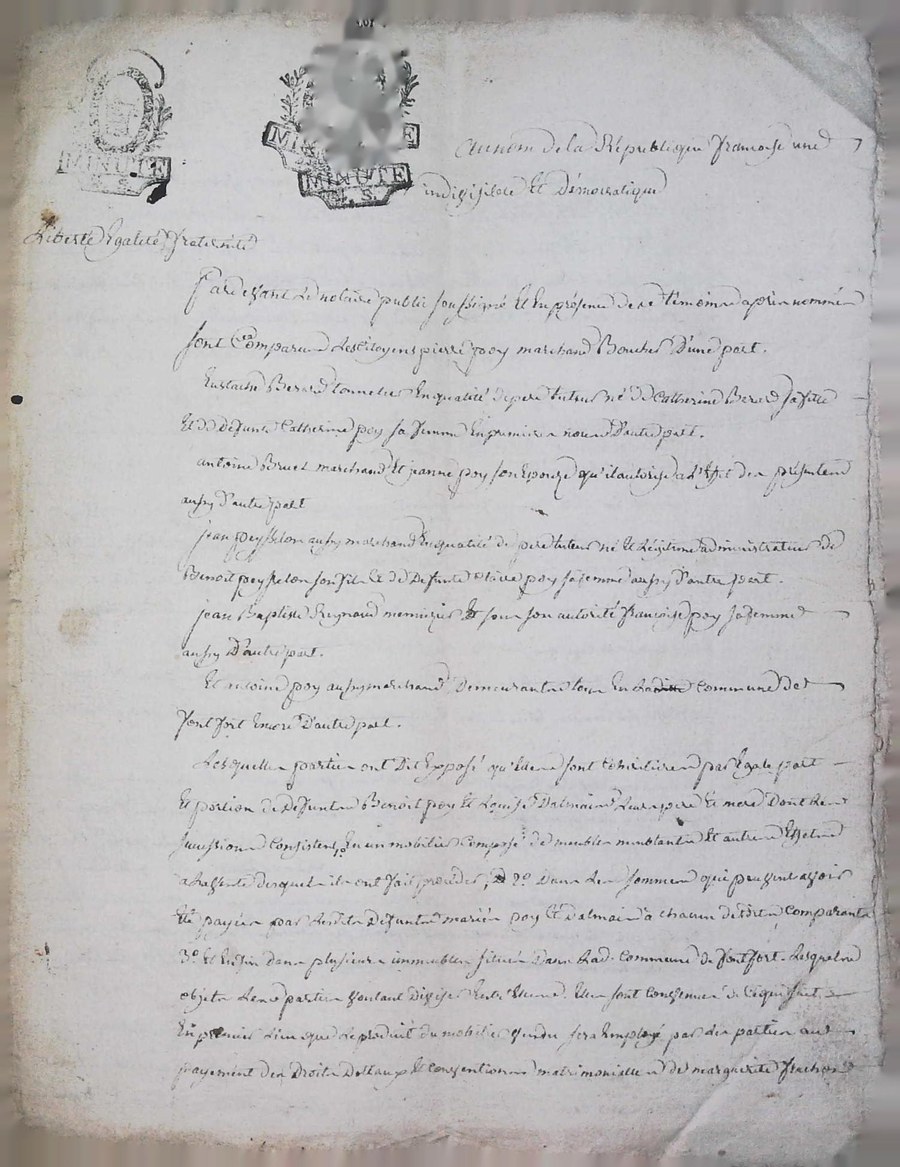 MINUTE
MINUTE
S.
au nom de la République francoise une
indivisible Et Démocratique
Liberté Egalité fraternité
Pardevant Le notaire public soussigné Et En présence des témoins après nommés
sont Comparus Les Citoyens pierre poy marchand Boucher D'une part.
Eustache Berard tonnelier En qualité de pere tuteur né de Catherine Berard sa fille
Et de Defunte Catherine poy sa femme En premieres noces D'autre part.
antoine Bruel marchand Et jeanne poy son Epouze qu'il autorise a L'Effet des présentes
aussy d'autre part
jean peysselon aussy marchand En qualité de pere tuteur né Et Légitime administrateur de
Benoit peysselon son fils Et de Defunte poy sa femme aussy d'autre part.
jean Baptiste Reynaud menuizier Et sous son autorité francoise poy sa femme
aussy D'autre part.
Et antoine poy aussy marchand Demeurants tous En commune de
fontfort Encore D'autre part.
Lesquelles parties ont Dit Exposé qu'Elles sont héritieres par Egale part
Et portion de Defunts Benoit poy Et Louise Dalmais Leurs pere Et mere Dont Les
successions Consistent, En un mobilier Composé de meubles meublants Et autres Effets
a La vente desquels ils ont fait proceder, 2°. Dans Les sommes qui peuvent avoir
Eté payées par Lesdits Defunts mariés poy Et Dalmais à chacun desdits Comparants
3°. Et Enfin dans plusieurs immeubles situés Dans Lad. Commune de fontfort. Lesquels
objets Les parties voulant Diviser Entr'Elles. Elles sont Convenues de Ce qui suit.
En premier Lieu que Le produit du mobilier vendu sera Employé par Les parties aux
payement des Droits Dottaux Et Conventions matrimonialles de marguerite